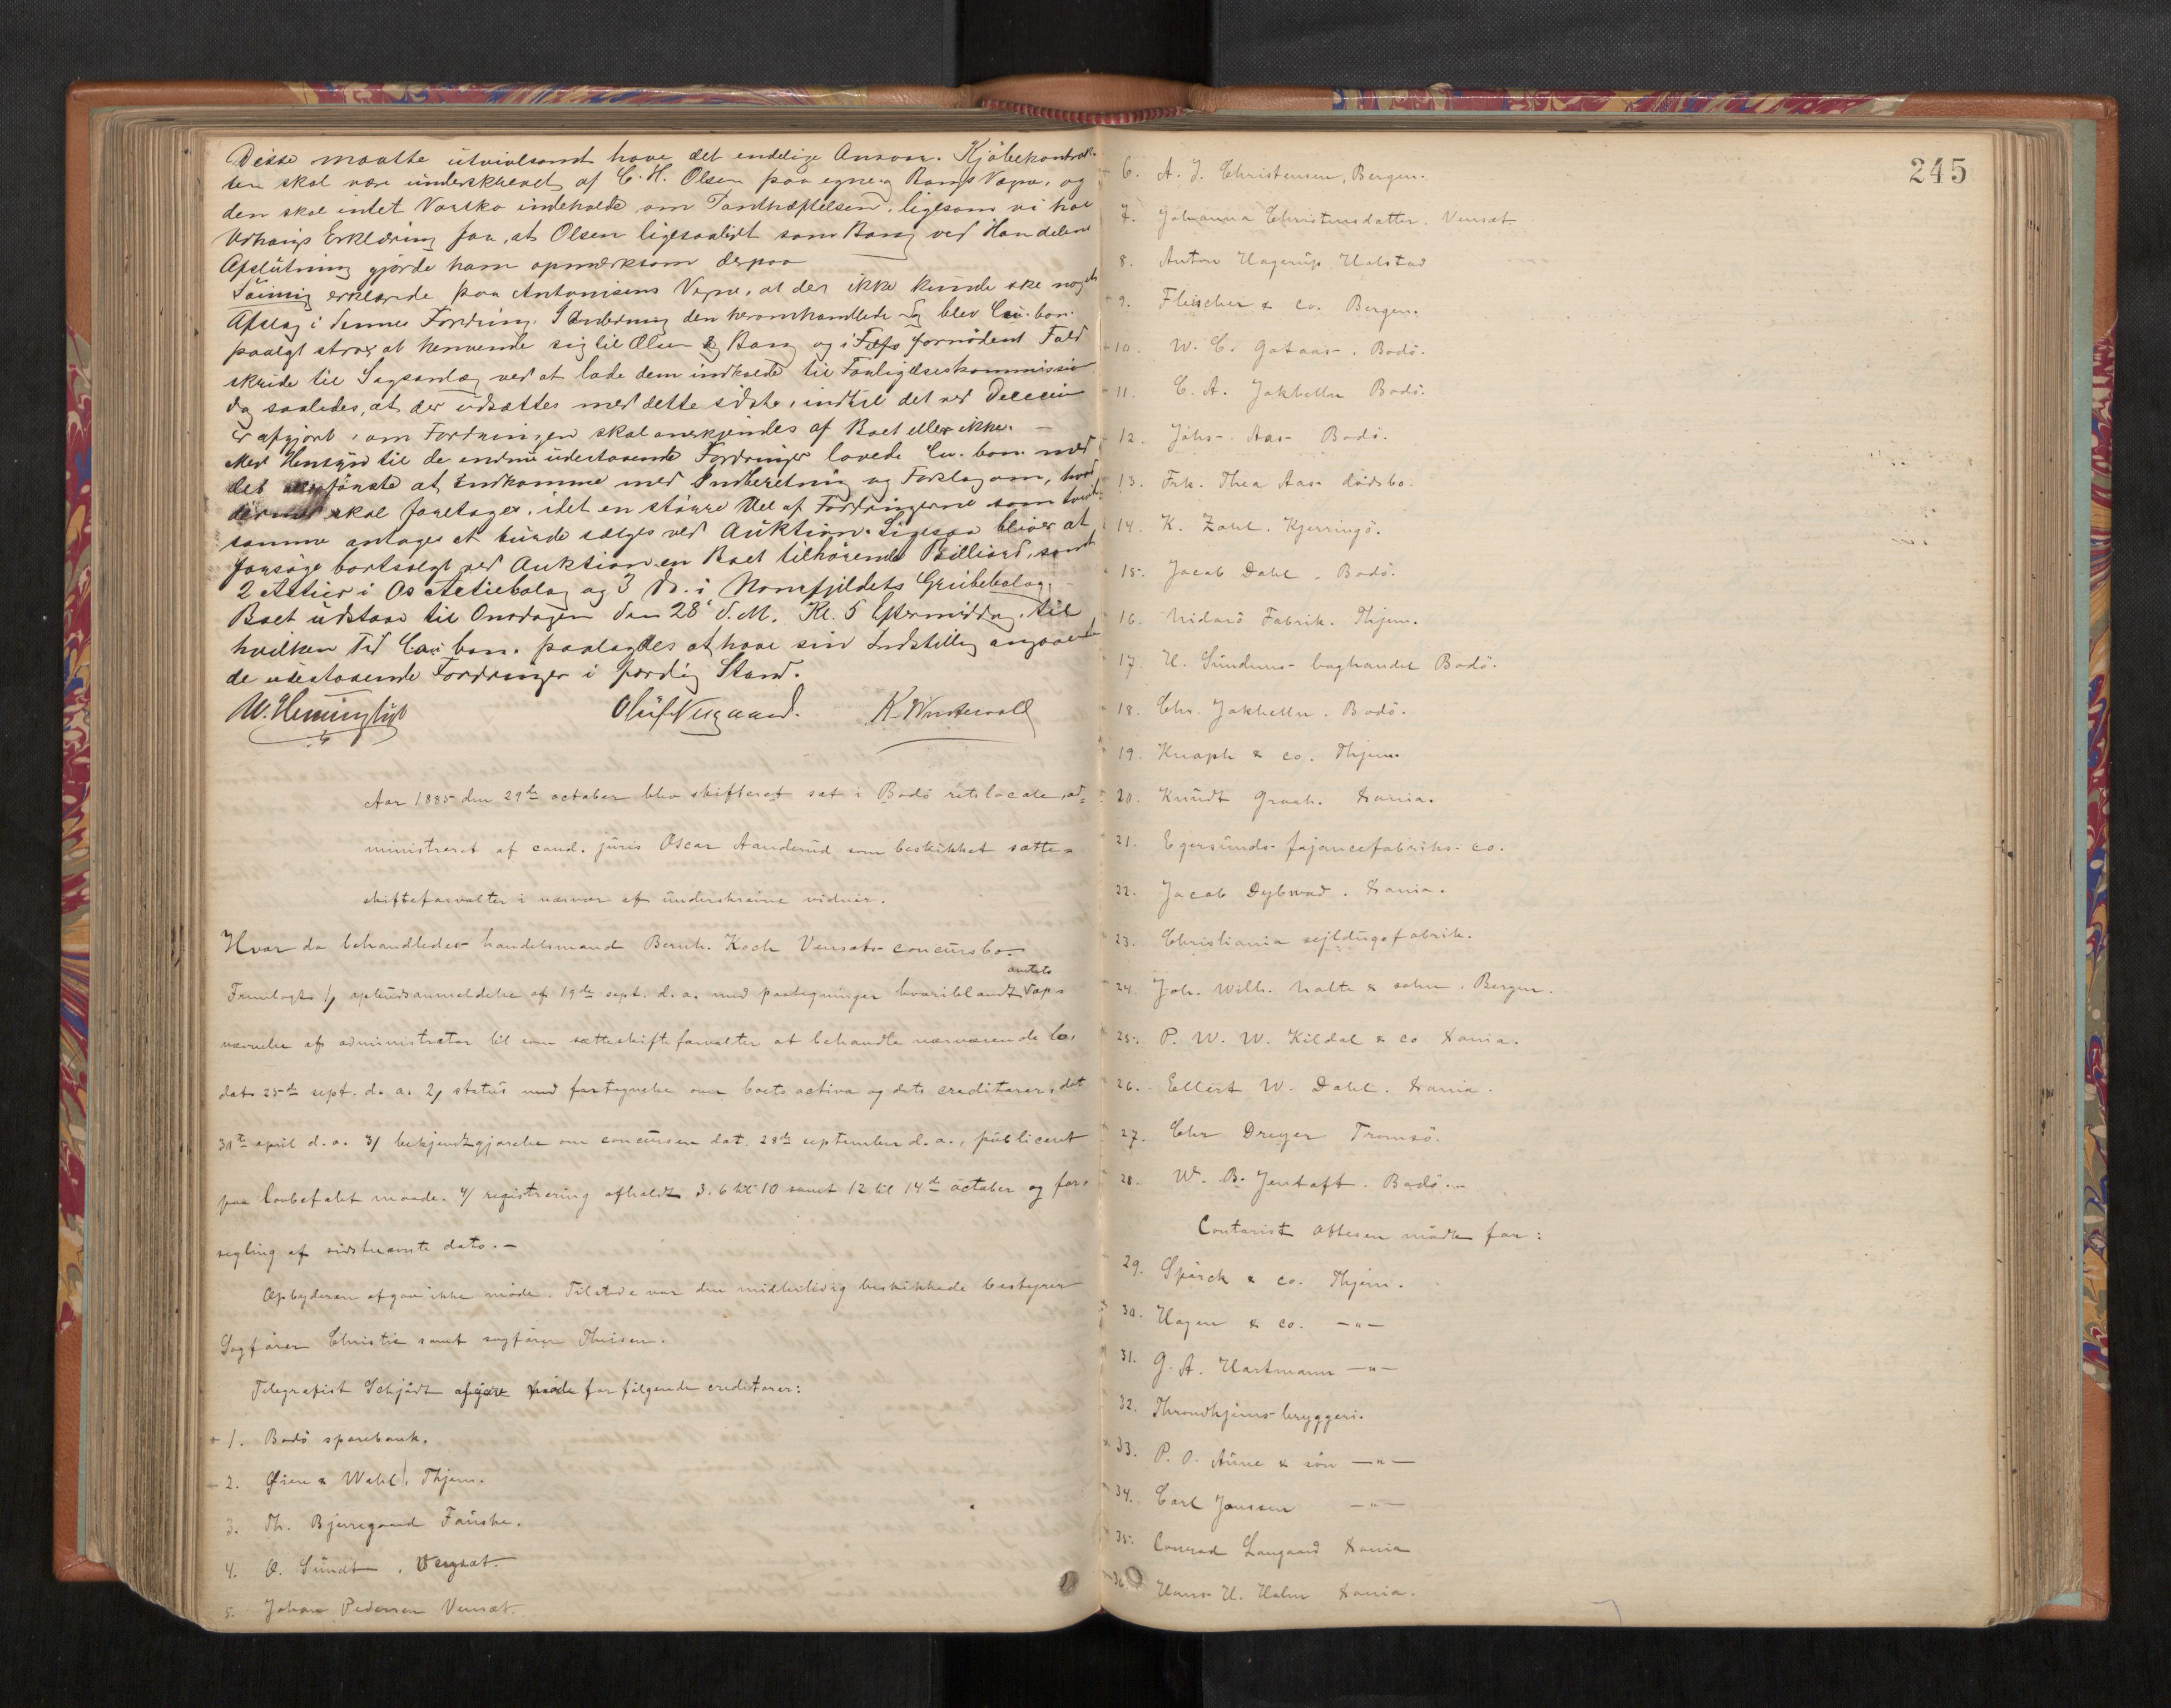 Disse maatte utvivlsomt have det endelige Ansvar. Kjøbekontrak-
ten skal være underskrevet af C. H. Olsen paa egne og Bangs Vegne, og
den skal intet Vortko indeholde om Panthæftelsen, ligesom vi har
Erklæring fra, at Olsen ligesaalidt som Bang ved Handelens
Afslutning gjorde ham opmærksom derpaa
erklærede paa Antonisens Vegne, at der ikke kunde ske noget
Afslag i dennes Fordring. den heromhandlede Sag blev Cu. bon.
paalagt strax at henvende sig til Olsen & Bang og i fornødent Fald
skride til Sagsanlæg ved at lade dem indkalde til Forligelseskommission
dog saaledes, at der udsættes med dette sidste, indtil det ved Decision
er afgjort, om Fordringen skal anerkjendes af Boet eller ikke. —
Med Hensyn til de endnu udestaaende Fordringer lovede Cu. bon. med
det allerførste at indkomme med Indberetning og Forslag om, hvad
dermed skal foretages, idet en større Del af Fordringerne som
somme antages at burde sælges ved Auktion. Ligesaa bliver at
forsøge bortsolgt ved Auktion en Boet tilhørende Billiard, samt
2 Aktier i Os Actiebolag og 3 do. i Monsfjeldets Grubebolag. —
Boet udstaar til Onsdagen den 28de d. M. Kl. 5 Eftermiddag, til
hvilken Tid Cu. bon. paalagdes at have sin Indstilling angaaende
de udestaaende Fordringer i færdig Stand.
Oluf Nergaard. K. Winterwold
Aar 1885 den 29de october blev skifteret sat i Bodö retslocale, ad-
ministreret af cand. juris Oscar Aanderud som beskikket sætte-
skifteforvalter i nærvær af underskrevne vidner.
Hvor da behandledes handelsmand Bernh. Koch Vensets concursbo.
amtets
Fremlagtes 1/ opbudsanmeldelse af 19de sept. d. a. med paategninger hvoriblandt op-
nævnelse af administrator til som sætteskifteforvalter at behandle nærværende bo,
dat. 25de sept. d. a. 2/ status med fortegnelse over boets activa og dets creditorer, dat.
30te april d. a. 3/ bekjendtgjørelse om concursen dat. 28de september d. a., publiceret
paa lovbefalet maade. 4/ registrering afholdt 3. 6 til 10 samt 12 til 14de october og for-
segling af sidstnævnte dato. —
Opbyderen afgav ikke møde. Tilstede var den midlertidig beskikkede bestyrer
Sagfører Christie samt sagfører Thrisen.
Telegrafist Schjödt afgav møde for følgende creditorer:
1. Bodö sparebank.
2. Øien & Wahl. Thjem.
3. Th. Bjerregaard Fauske.
4. O. Sundt, Venset.
5. Johan Pedersen Venset.
245
6. A. J. Christensen, Bergen.
7. Johanna Christensdatter. Venset
8. Anton Hagerup Halstad
9. Fleischer & co. Bergen.
10. W. C. Gotaas. Bodö.
11. C. A. Jakhelln Bodö.
12. Johs. Aas Bodö.
13. Frk. Thea Aas dödsbo.
14. K. Zahl. Kjerringö.
15. Jacob Dahl. Bodö.
16. Nidarö Fabrik. Thjem.
17. H. Sundems boghandel Bodö.
18. Chr. Jakhelln. Bodö.
19. Knoph & co. Thjem.
20. Knudt Graah. Xania.
21. Egersunds fajancefabriks co.
22. Jacob Dybwad. Xania.
23. Christiania sejldugsfabrik.
24. Joh. Wilh. Nolte & sohn. Bergen.
25. P. W. W. Kildal & co Xania.
26. Ellert W. Dahl. Xania.
27. Chr Dreyer Tromsö.
28. W. B. Jentoft. Bodö.
Contorist Ottesen mödte for:
29. Spörck & co. Thjem.
30. Hagen & co. —"—
31. G. A. Hartmann —"—
32. Throndhjems bryggeri.
33. P. O. Aune & sön —"—
34. Carl Janssen —"—
35. Conrad Langaard Xania
36 Hans H. Holm Xania.